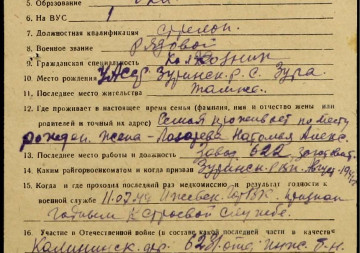 5. Образование
6. На ВУС 1
7. Должностная квалификация стрелок
8. Военное звание Рядовой
9. Гражданская специальность Колхозник
10. Место рождения УАССР Зуринск. р. с. Зура
11. Последнее место жительства Там же.
12. Где проживает в настоящее время семья (фамилия, имя и отчество жены или
родителей и точный их адрес) Семья проживает по месту
рожден. Жена - Наталья Алекс.
14. Последнее место работы и должность Завод 622,
14. Каким райгорвоенкоматом и когда призван Зуринск. РВК
15. Когда и где проходил последний раз медкомиссию и результат годности к
военной службе 11.02.44 Ижевск. ГорВК. признан
годным к строевой службе.
16. Участие в Отечественной войне (в составе какой последней части в качестве
Калининск. фр. 621